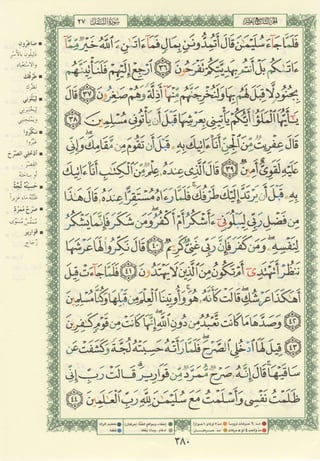 سُورَةُ النَّمْل ٢٧
فَلَمَّا جَآءَ سُلَيْمَٰنَ قَالَ أَتُمِدُّونَنِ بِمَالٍ فَمَآ ءَاتَىٰنِۦَ ٱللَّهُ خَيْرٌ مِّمَّآ
ءَاتَىٰكُم بَلْ أَنتُم بِهَدِيَّتِكُمْ تَفْرَحُونَ ٣٦ ٱرْجِعْ إِلَيْهِمْ فَلَنَأْتِيَنَّهُم
بِجُنُودٍ لَّا قِبَلَ لَهُم بِهَا وَلَنُخْرِجَنَّهُم مِّنْهَآ أَذِلَّةً وَهُمْ صَٰغِرُونَ ٣٧ قَالَ
يَٰٓأَيُّهَا ٱلْمَلَؤُا۟ أَيُّكُمْ يَأْتِينِى بِعَرْشِهَا قَبْلَ أَن يَأْتُونِى مُسْلِمِينَ ٣٨
قَالَ عِفْرِيتٌ مِّنَ ٱلْجِنِّ أَنَا۠ ءَاتِيكَ بِهِۦ قَبْلَ أَن تَقُومَ مِن مَّقَامِكَ وَإِنِّى
عَلَيْهِ لَقَوِىٌّ أَمِينٌ ٣٩ قَالَ ٱلَّذِى عِندَهُۥ عِلْمٌ مِّنَ ٱلْكِتَٰبِ أَنَا۠ ءَاتِيكَ
بِهِۦ قَبْلَ أَن يَرْتَدَّ إِلَيْكَ طَرْفُكَ فَلَمَّا رَءَاهُ مُسْتَقِرًّا عِندَهُۥ قَالَ هَٰذَا
مِن فَضْلِ رَبِّى لِيَبْلُوَنِىٓ ءَأَشْكُرُ أَمْ أَكْفُرُ وَمَن شَكَرَ فَإِنَّمَا يَشْكُرُ
لِنَفْسِهِۦ وَمَن كَفَرَ فَإِنَّ رَبِّى غَنِىٌّ كَرِيمٌ ٤٠ قَالَ نَكِّرُوا۟ لَهَا عَرْشَهَا
نَنظُرْ أَتَهْتَدِىٓ أَمْ تَكُونُ مِنَ ٱلَّذِينَ لَا يَهْتَدُونَ ٤١ فَلَمَّا جَآءَتْ قِيلَ
أَهَٰكَذَا عَرْشُكِ قَالَتْ كَأَنَّهُۥ هُوَ وَأُوتِينَا ٱلْعِلْمَ مِن قَبْلِهَا وَكُنَّا مُسْلِمِينَ
٤٢ وَصَدَّهَا مَا كَانَت تَّعْبُدُ مِن دُونِ ٱللَّهِ إِنَّهَا كَانَتْ مِن قَوْمٍ كَٰفِرِينَ
٤٣ قِيلَ لَهَا ٱدْخُلِى ٱلصَّرْحَ فَلَمَّا رَأَتْهُ حَسِبَتْهُ لُجَّةً وَكَشَفَتْ عَن
سَاقَيْهَا قَالَ إِنَّهُۥ صَرْحٌ مُّمَرَّدٌ مِّن قَوَارِيرَ قَالَتْ رَبِّ إِنِّى
ظَلَمْتُ نَفْسِى وَأَسْلَمْتُ مَعَ سُلَيْمَٰنَ لِلَّهِ رَبِّ ٱلْعَٰلَمِينَ ٤٤
صَاغِرُون
طَرْفُك
نظرك
لِيَبْلُوَنِي
نَكِّرُوا
غيّروا
ادْخُلِي الصَّرْح
حَسِبَتْهُ لُجَّة
صَرْحٌ مُمَرَّد
قَوَارِير
زجاج
٣٨٠